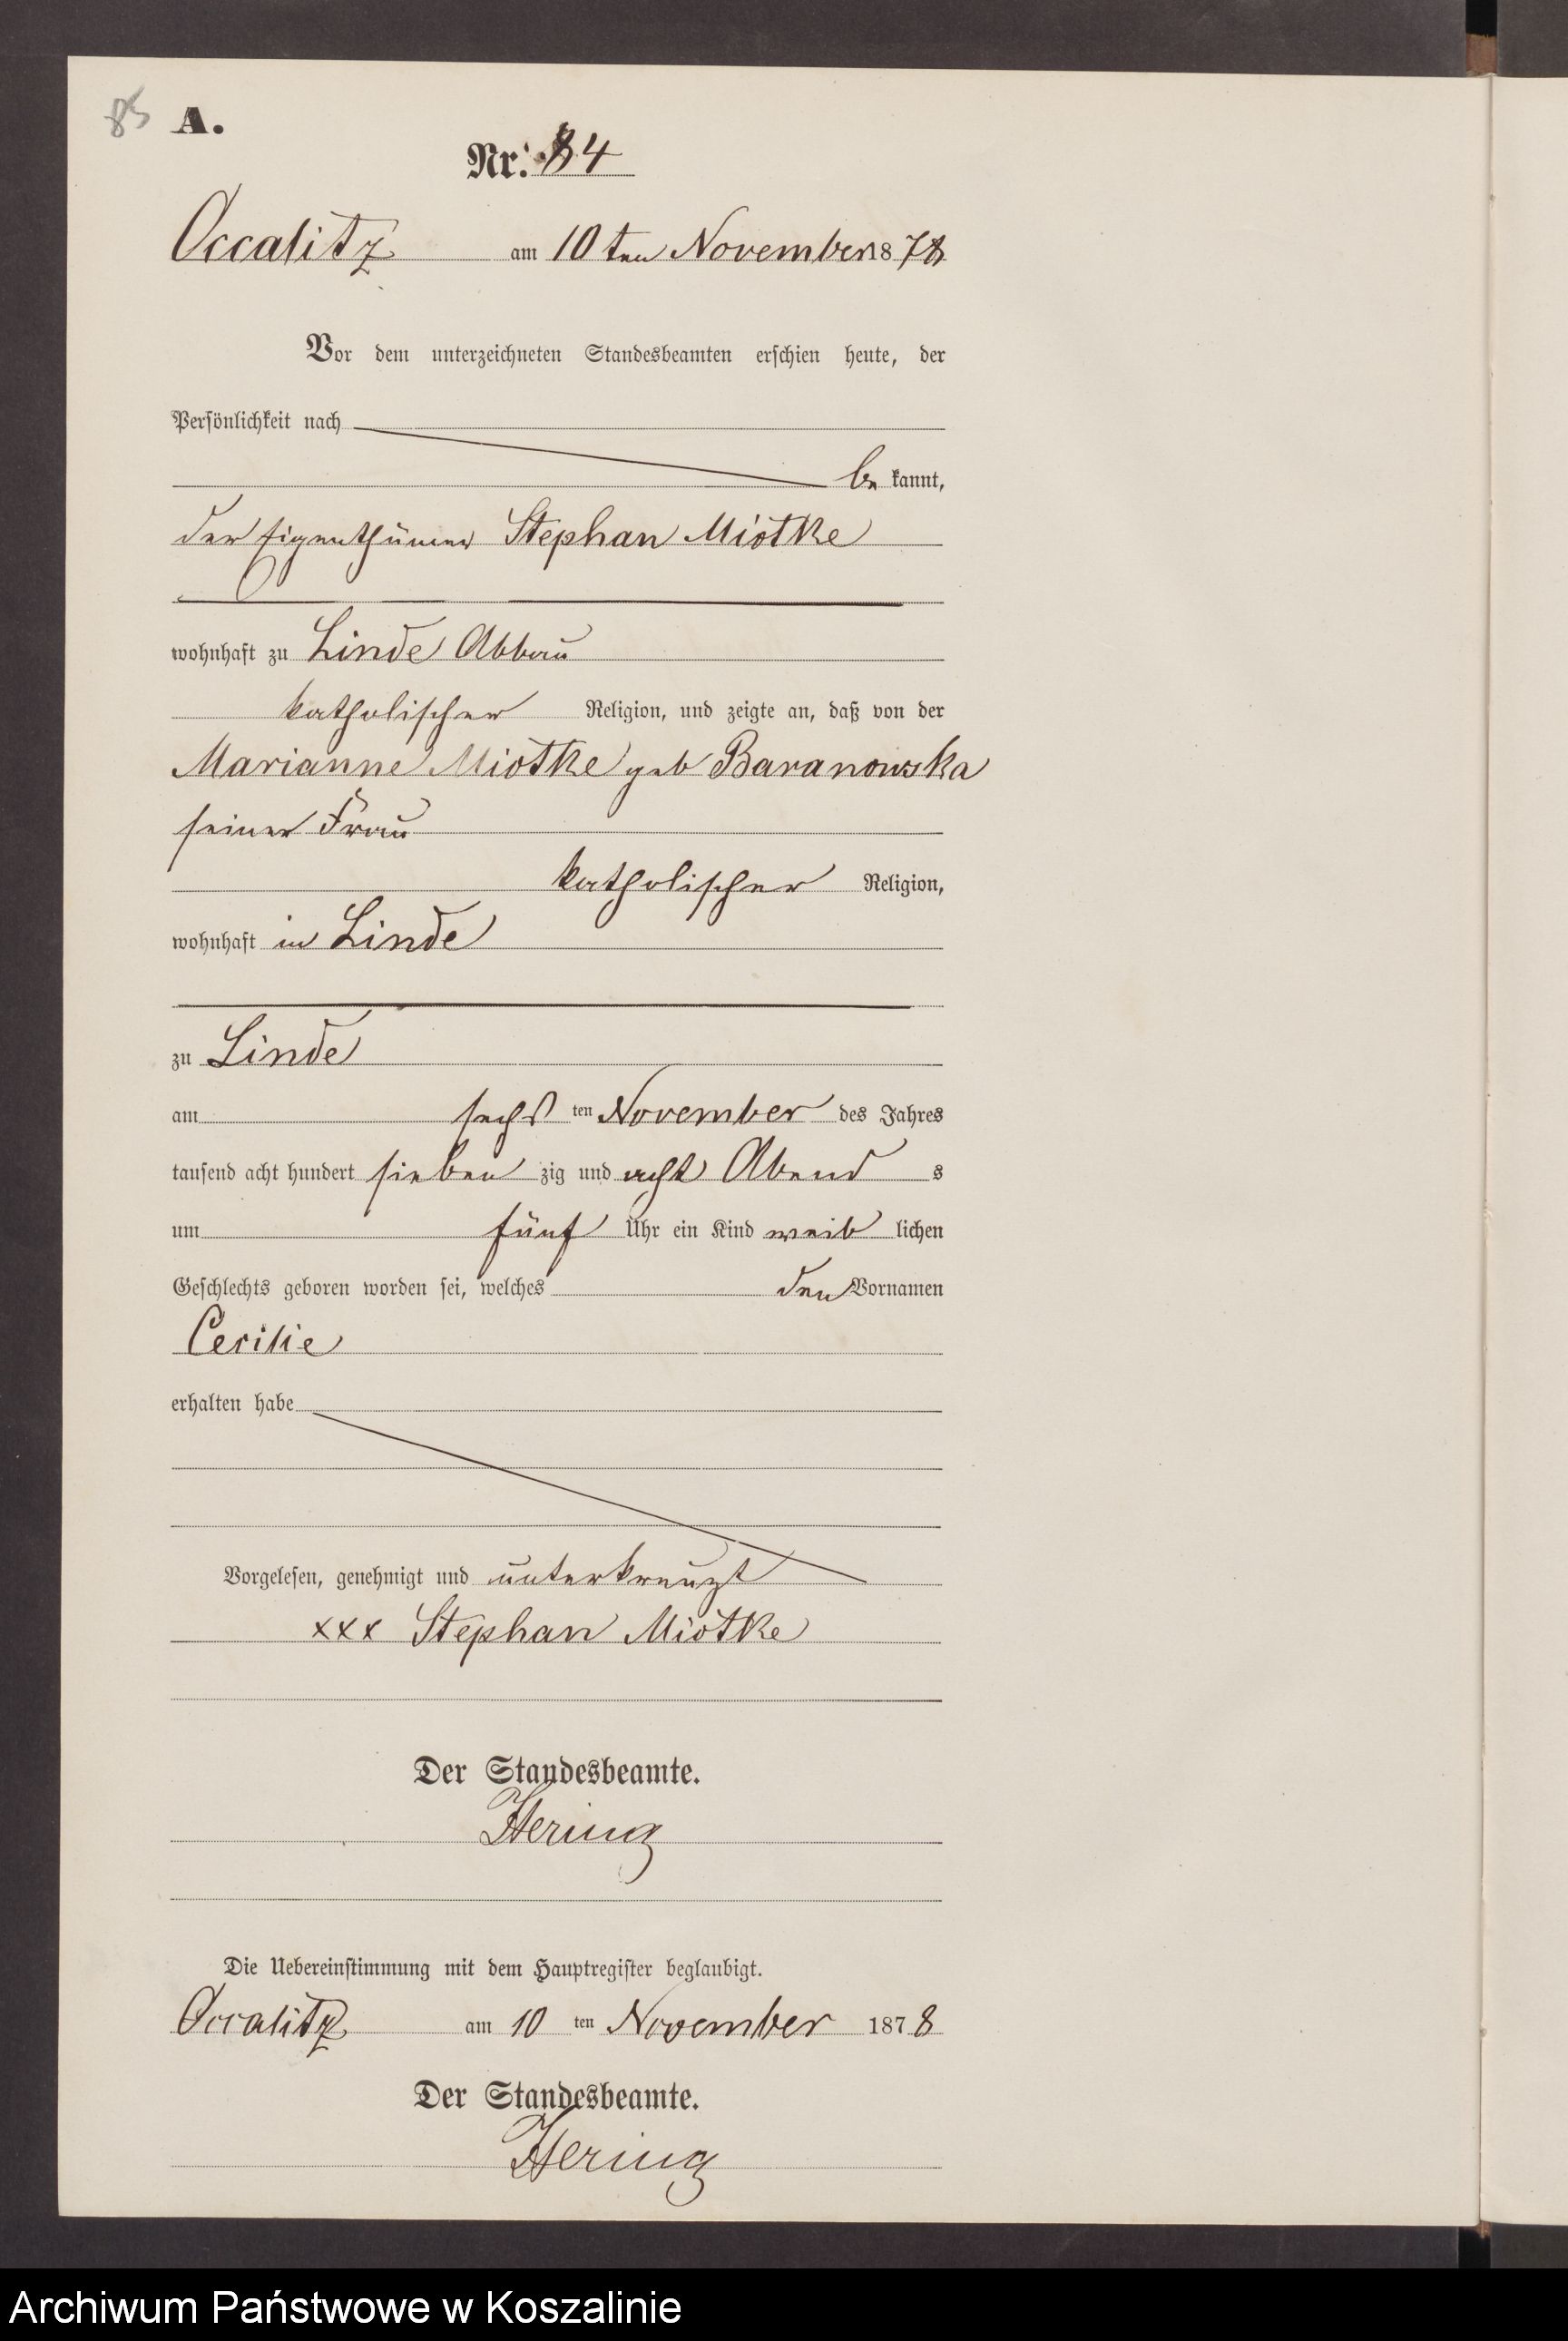 85 A.
Nr. 84
Occalitz am 10 ten November 1878
Vor dem unterzeichneten Standesbeamten erschien heute, der
Persönlichkeit nach
be kannt,
der Eigenthümer Stephan Miotke
wohnhaft zu Linde Abbau
katholischer Religion, und zeigte an, daß von der
Marianne Miotke geb Baranowska
seiner Frau
katholischer Religion,
wohnhaft in Linde
zu Linde
am sechs ten November des Jahres
tausend acht hundert sieben zig und acht Abend s
um fünf Uhr ein Kind weib lichen
Geschlechts geboren worden sei, welches den Vornamen
Cecilie
erhalten habe
Vorgelesen, genehmigt und unterkreuzt
xxx Stephan Miotke
Der Standesbeamte.
Hering
Die Uebereinstimmung mit dem Hauptregister beglaubigt.
Occalitz am 10 ten November 1878
Der Standesbeamte.
Hering
Archiwum Państwowe w Koszalinie